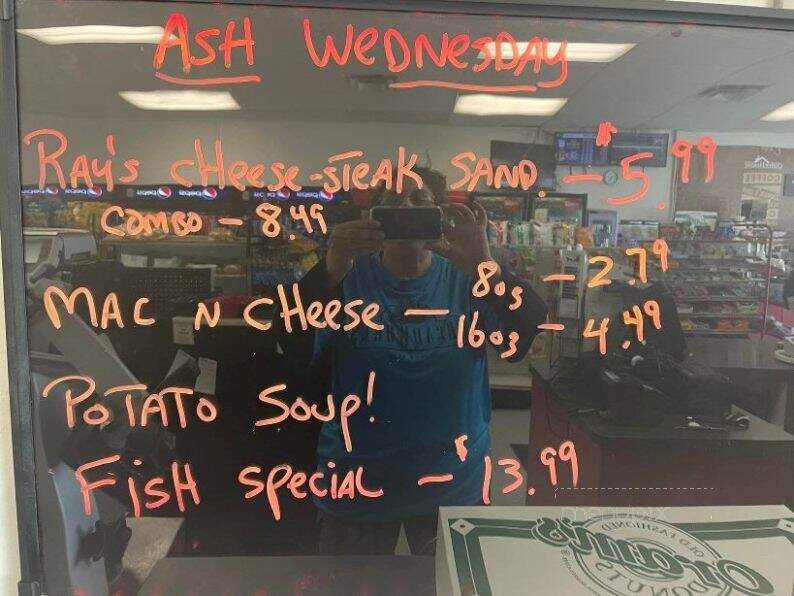 ASH WEDNESDAY
RAY'S CHEESE-STEAK SAND. - $5.99
COMBO - 8.49
MAC N CHEESE - 8oz - 2.79
16oz - 4.49
POTATO SOUP!
FISH SPECIAL - $13.99
OLD FASHIONED
Oram's
DONUTS